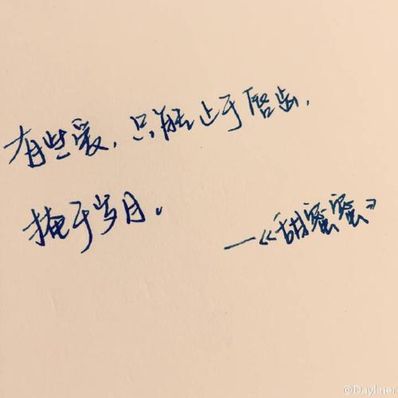 有些爱，只能止于唇齿，
掩于岁月。
—《甜蜜蜜》
@Dayliner